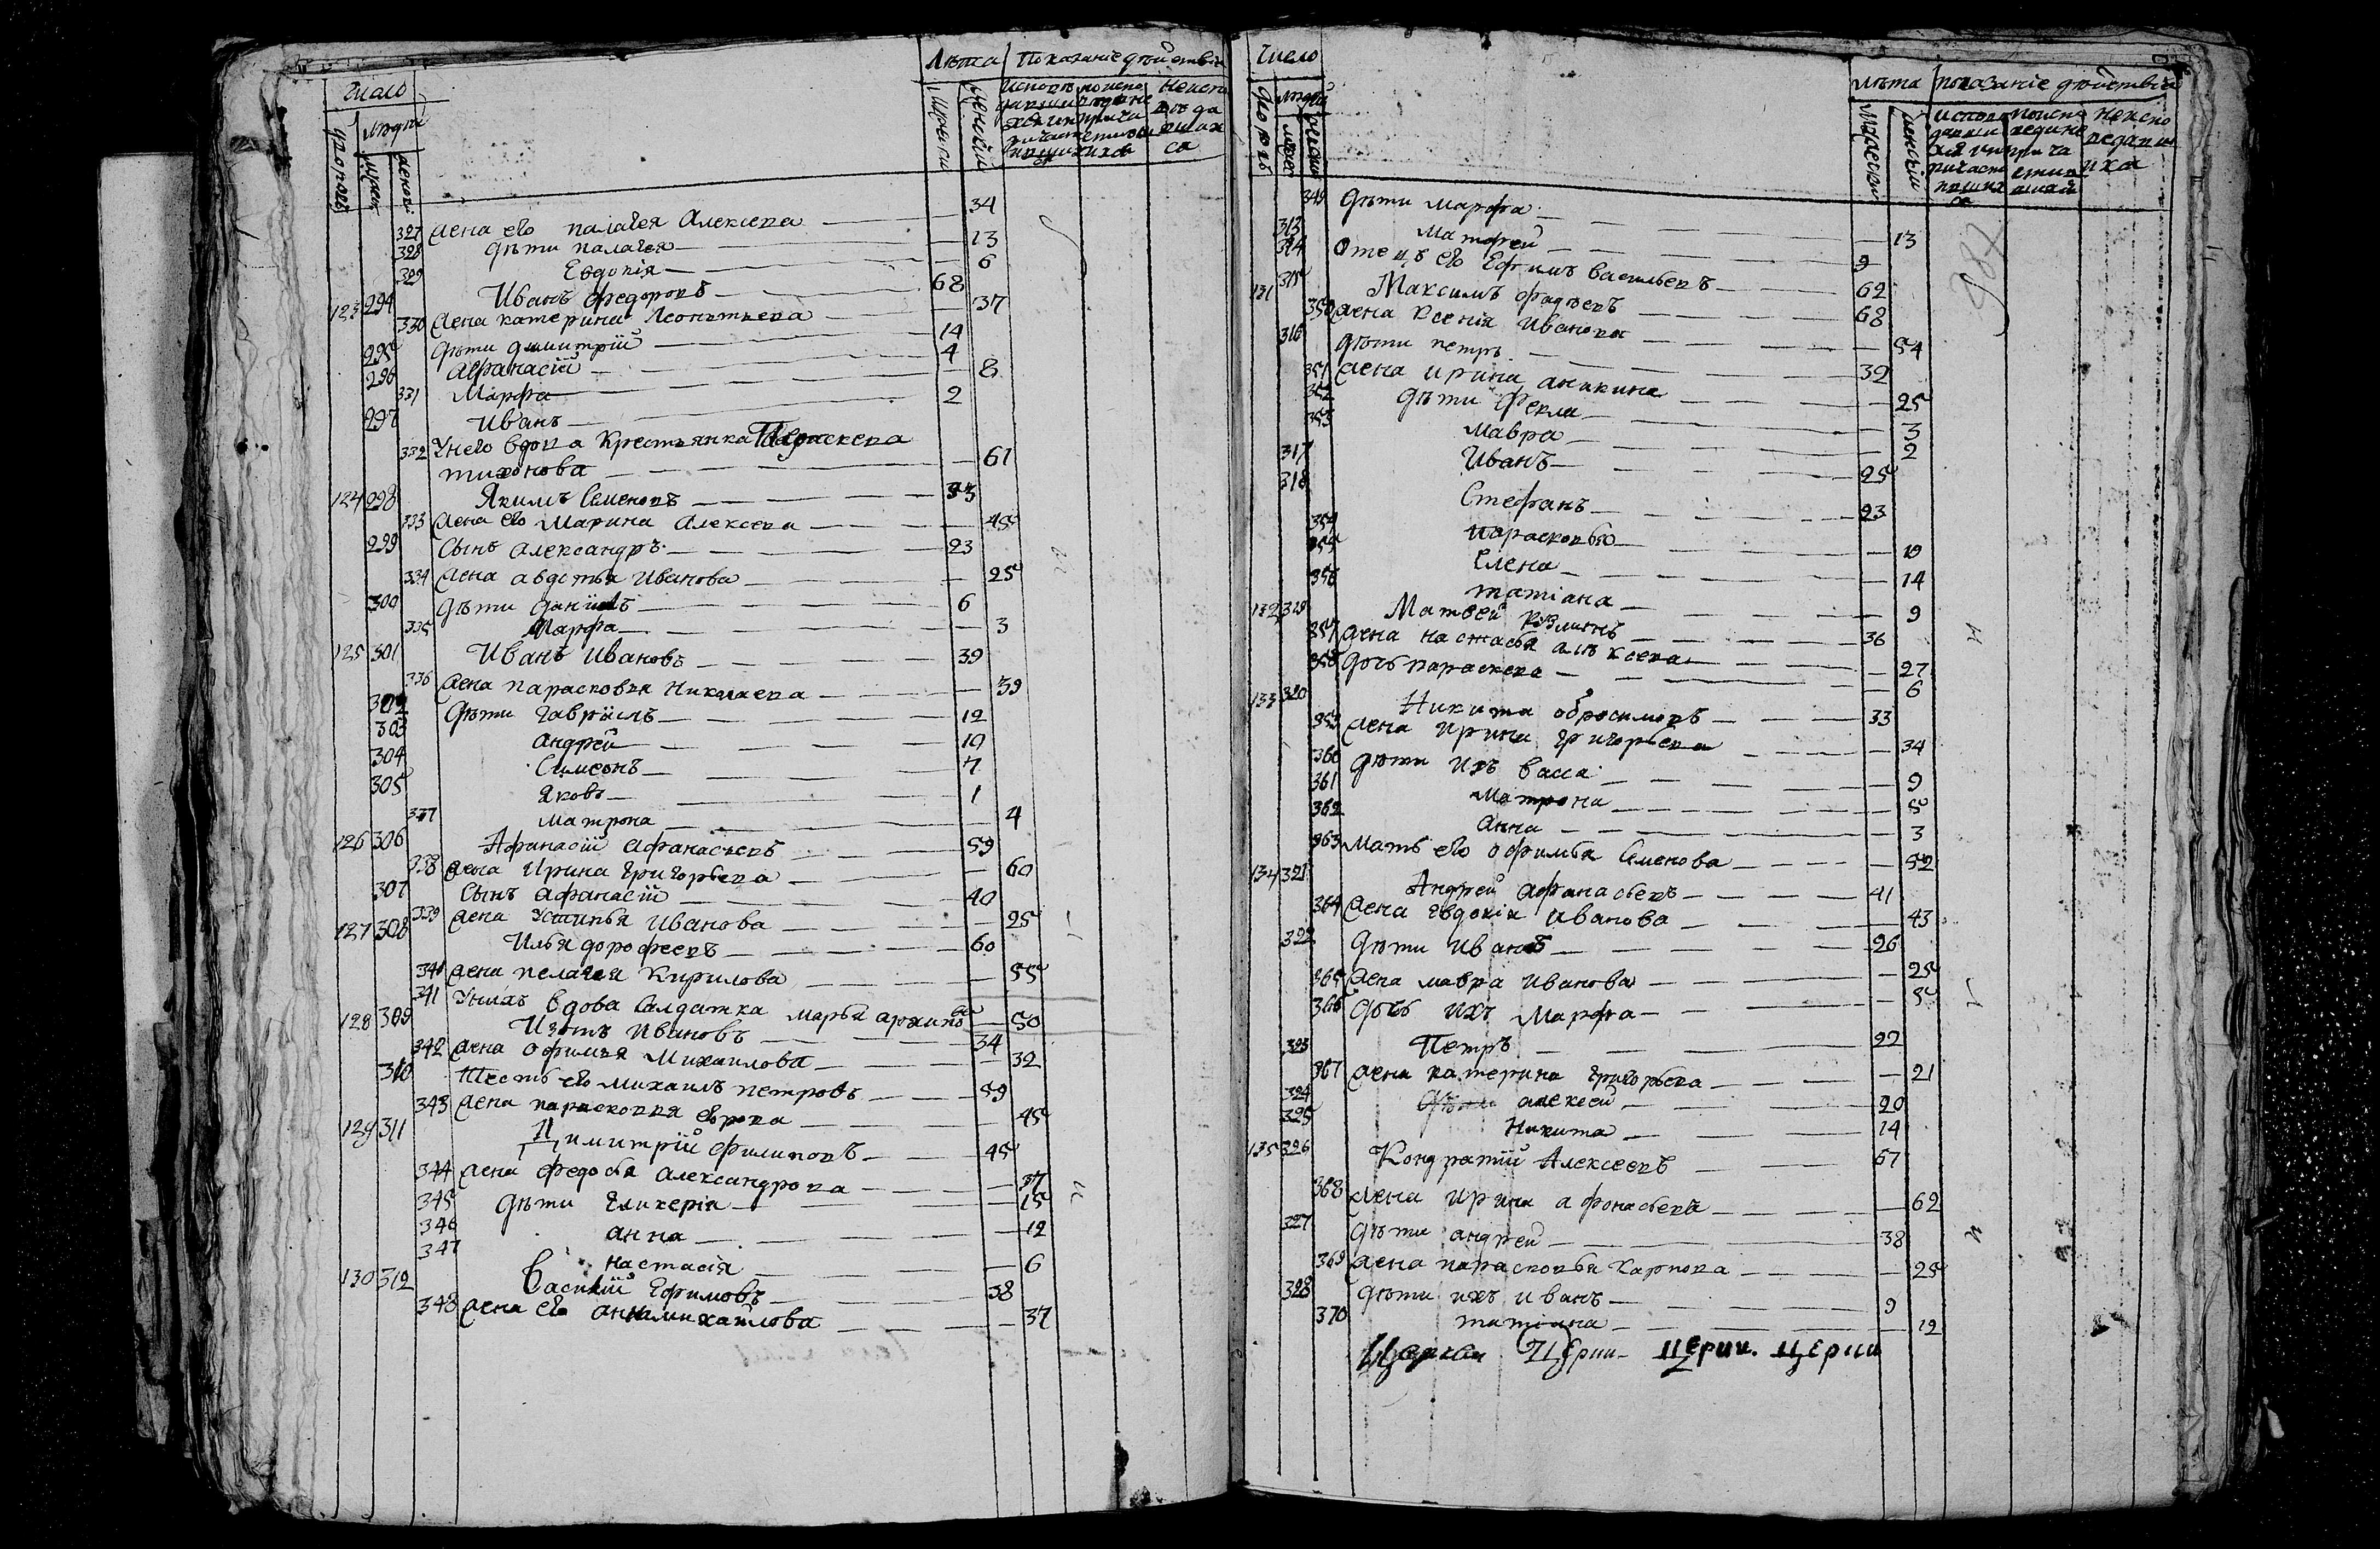 Число
Лѣта Показание дѣйствія
дворовъ
людей
мужеск
женск
327 жена его палагея Алексеева — 34
328 дѣти палагея — 13
329 Евдокія — 6
123 294 Иванъ Федоровъ — 68
330 жена катерина Леонтьева — 37
295 дѣти димитрїй — 14
296 Афанасїй — 4
331 Марфа — 8
297 Иванъ — 2
332 У него вдова Крестьянка Параскева
тихонова — 61
124 298 Якимъ Семеновъ — 53
333 жена его Марина Алексеева — 45
299 Сынъ Александръ — 23
334 жена авдотья Иванова — 25
300 дѣти данїилъ — 6
335 Марфа — 3
125 301 Иванъ Ивановъ — 39
336 жена парасковья Николаева — 39
302 дѣти Гаврїилъ — 12
303 андрей — 10
304 Симеонъ — 7
305 Яковъ — 1
337 матрона — 4
126 306 Афанасїй Афанасьевъ — 59
338 жена Ирина григорьева — 60
307 Сынъ афанасїй — 40
339 жена Устинья Иванова — 25
127 308 Илья дорофеевъ — 60
340 жена пелагея Кирилова — 55
341 У нихъ вдова Салдатка марья архипова — 50
128 309 Изотъ Ивановъ — 34
342 жена офимья Михаилова — 32
310 Тесть его михаилъ петровъ — 59
343 жена парасковья — 45
129 311 Димитрїй Филиповъ — 45
344 жена федосья Александрова — 37
345 дѣти гликерія — 15
346 анна — 12
347 настасія — 6
130 312 Василїй Ефимовъ — 38
348 жена его анна михаилова — 37
Число
лѣта показаніе дѣйствія
людей
349 дѣти марфа — 13
313 матфей — 9
314 отецъ его Ефимъ васильевъ — 62
131 315 Максимъ фадѣевъ — 68
350 жена Ксенія Иванова — 54
316 дѣти петръ — 32
351 жена ирина аникина — 25
352 дѣти Фекла — 3
353 мавра — 2
317 Иванъ — 25
318 Стефанъ — 23
354 парасковья — 19
355 Елена — 14
356 татіана — 9
132 319 Матвей Козминъ — 36
357 жена настасья алѣксеева — 27
358 дочь параскева — 6
133 320 Никита обросимовъ — 33
359 жена Ирина григорьева — 34
360 дѣти ихъ васса — 9
361 матрона — 5
362 анна — 3
363 мать его офимья Семенова — 52
134 321 Андрей афанасьевъ — 41
364 жена Евдокія иванова — 43
322 дѣти иванъ — 26
365 жена мавра иванова — 25
366 дочь ихъ марфа — 5
323 Петръ — 22
367 жена катерина григорьева — 21
324 дѣти алексей — 20
325 никита — 14
135 326 Кондратїй Алексеевъ — 67
368 жена ирина афонасьева — 62
327 дѣти андрей — 38
369 жена парасковья Карпова — 25
328 дѣти ихъ иванъ — 9
370 татіана — 12